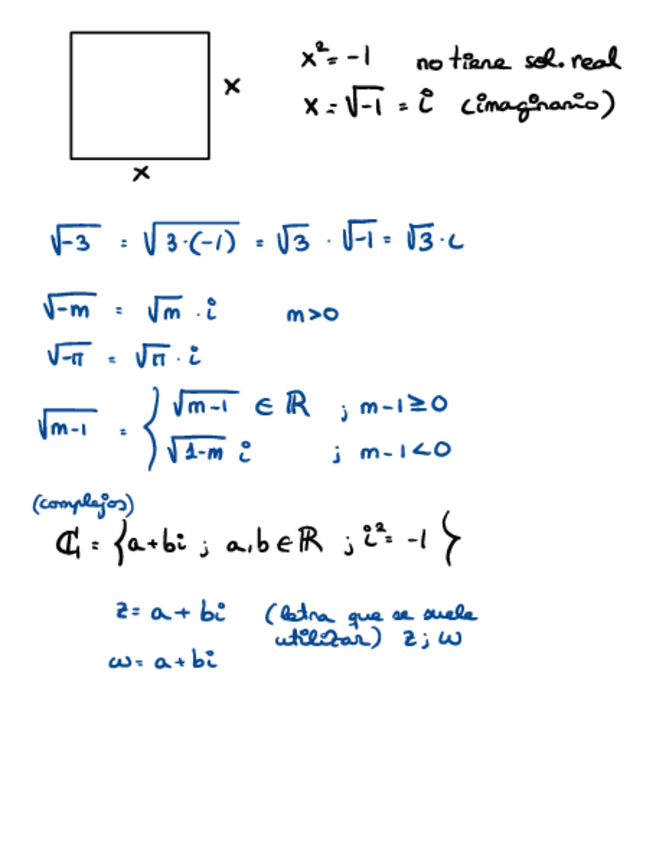 x² = -1 no tiene sol. real
x
x = √-1 = i (imaginario)
x
√-3 = √3·(-1) = √3 · √-1 = √3 · i
√-m = √m · i m>0
√-π = √π · i
√m-1 = { √m-1 ∈ ℝ ; m-1≥0
√1-m i ; m-1<0
(complejos)
ℂ = {a+bi ; a,b ∈ ℝ ; i² = -1}
z = a + bi (letra que se suele
utilizar) z ; w
w = a + bi